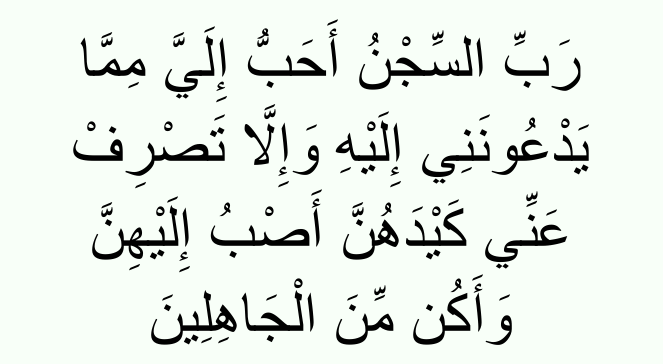 رَبِّ السِّجْنُ أَحَبُّ إِلَيَّ مِمَّا
يَدْعُونَنِي إِلَيْهِ وَإِلَّا تَصْرِفْ
عَنِّي كَيْدَهُنَّ أَصْبُ إِلَيْهِنَّ
وَأَكُن مِّنَ الْجَاهِلِينَ